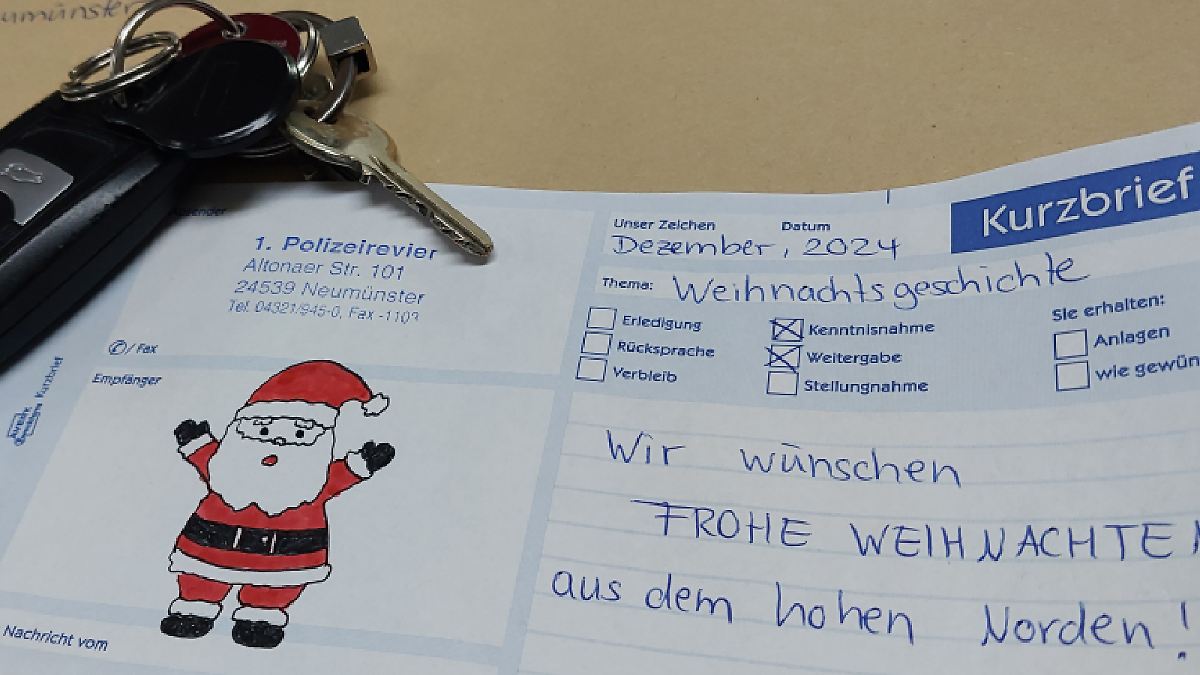 umünster
Kurzbrief
1. Polizeirevier
Altonaer Str. 101
24539 Neumünster
Tel. 04321/945-0, Fax -1103
✆/ Fax
Empfänger
Nachricht vom
Kurzbrief
Unser Zeichen Datum
Dezember, 2024
Thema: Weihnachtsgeschichte
Erledigung
Rücksprache
Verbleib
Kenntnisnahme
Weitergabe
Stellungnahme
Sie erhalten:
Anlagen
wie gewün
Wir wünschen
FROHE WEIHNACHTEN
aus dem hohen Norden!